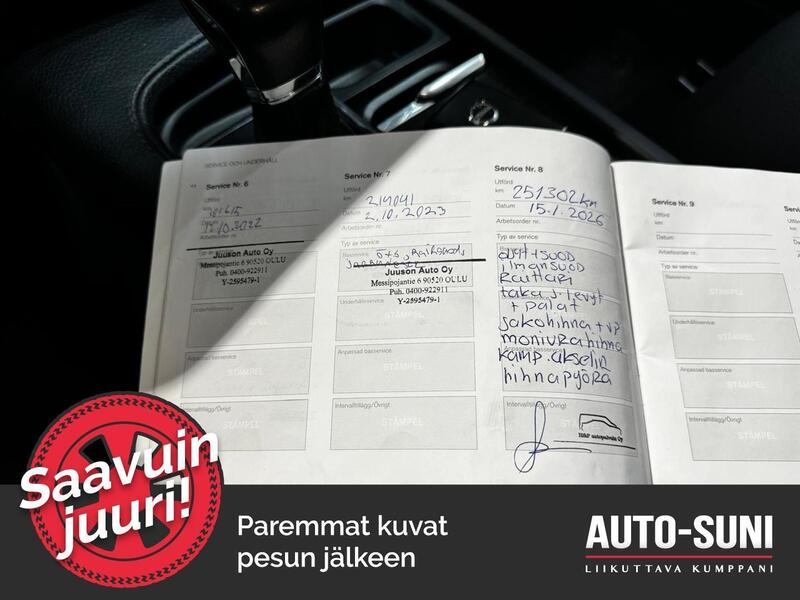 SERVICE OCH UNDERHÅLL
Service Nr. 6
Utförd
km 181615
Datum 12.10.2022
Arbetsorder nr.
Typ av service
Juuson Auto Oy
Messipojantie 6 90520 OULU
Puh. 0400-922911
Y-2595479-1
Underhållsservice
STÄMPEL
Anpassad basservice
STÄMPEL
Intervalltillägg/Övrigt
STÄMPEL
Service Nr. 7
Utförd
km 214041
Datum 2.10.2023
Arbetsorder nr.
Typ av service
Basservice
Juuson Auto Oy
Messipojantie 6 90520 OULU
Puh. 0400-922911
Y-2595479-1
Underhållsservice
STÄMPEL
Anpassad basservice
STÄMPEL
Intervalltillägg/Övrigt
STÄMPEL
Service Nr. 8
Utförd
km 251302km
Datum 15.1.2026
Arbetsorder nr.
Typ av service
öljyt + suod
ilmansuod
Raitisri
taka j-levyt
+ palat
jakohihna + vp
moniurahihna
kamp.akselin
hihnapyörä
Intervalltillägg/Övrigt
H&P autopalvelu Oy
Service Nr. 9
Utförd
km
Datum
Arbetsorder nr.
Typ av service
Basservice
STÄMPEL
Underhållsservice
STÄMPEL
Anpassad basservice
STÄMPEL
Intervalltillägg/Övrigt
STÄMPEL
Saavuin
juuri!
Paremmat kuvat
pesun jälkeen
AUTO-SUNI
LIIKUTTAVA KUMPPANI